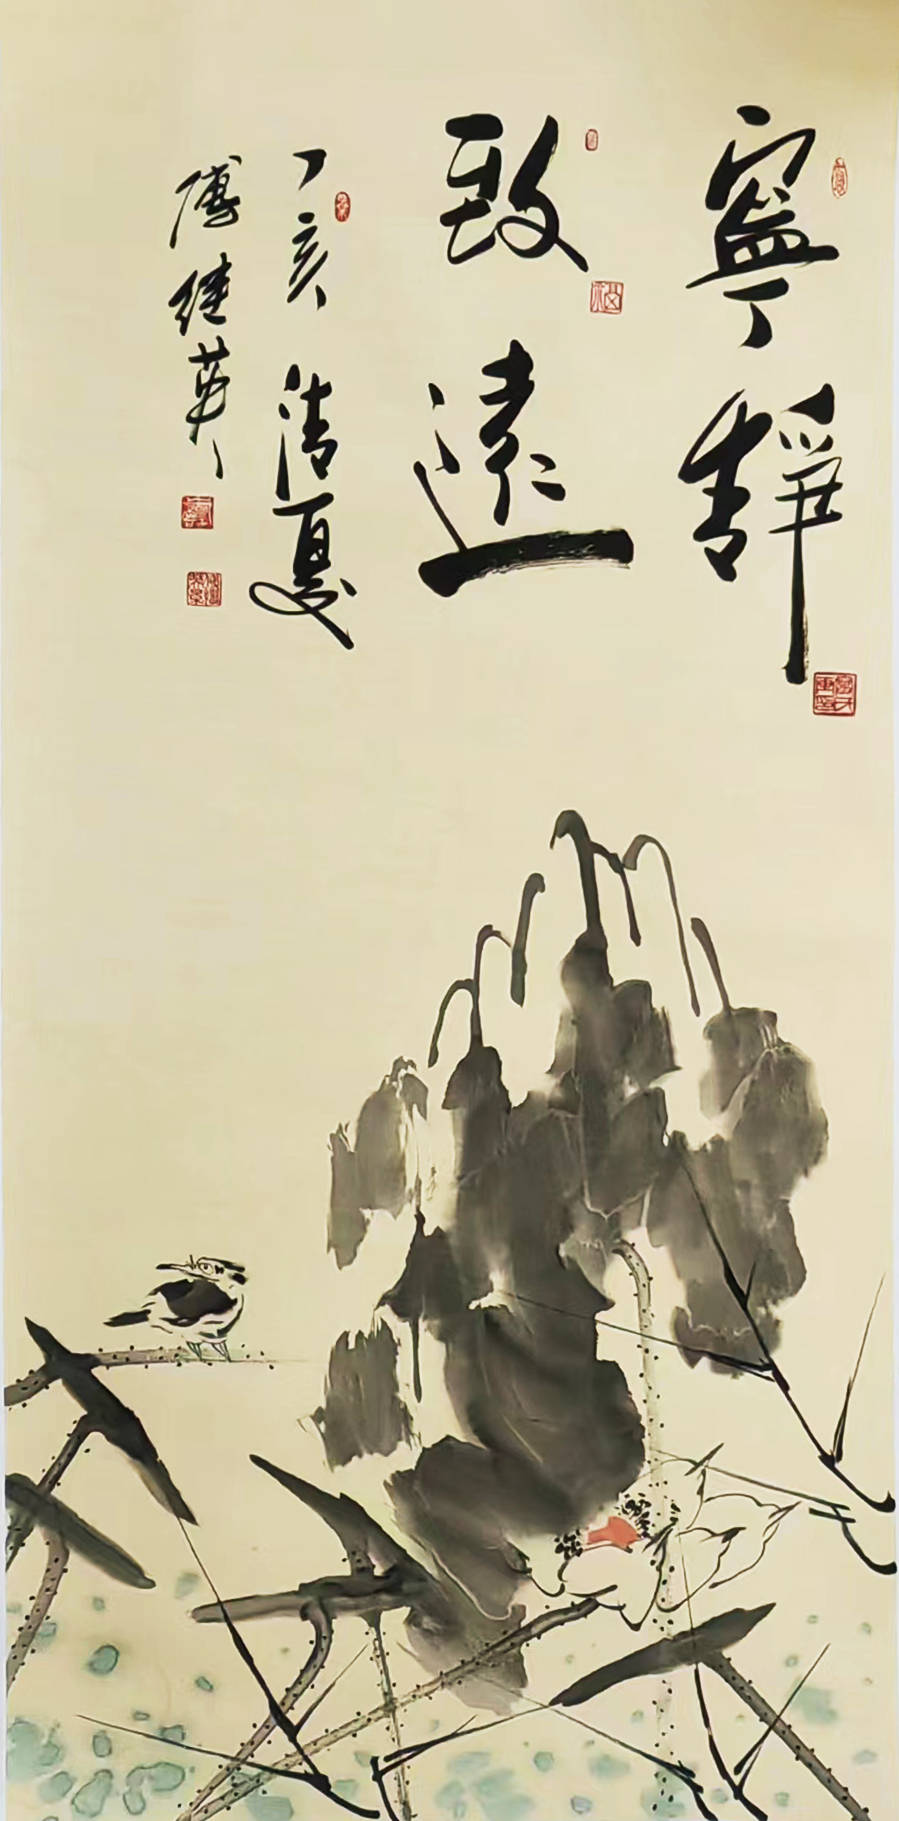 寧靜
致遠
丁亥清夏
傅继英